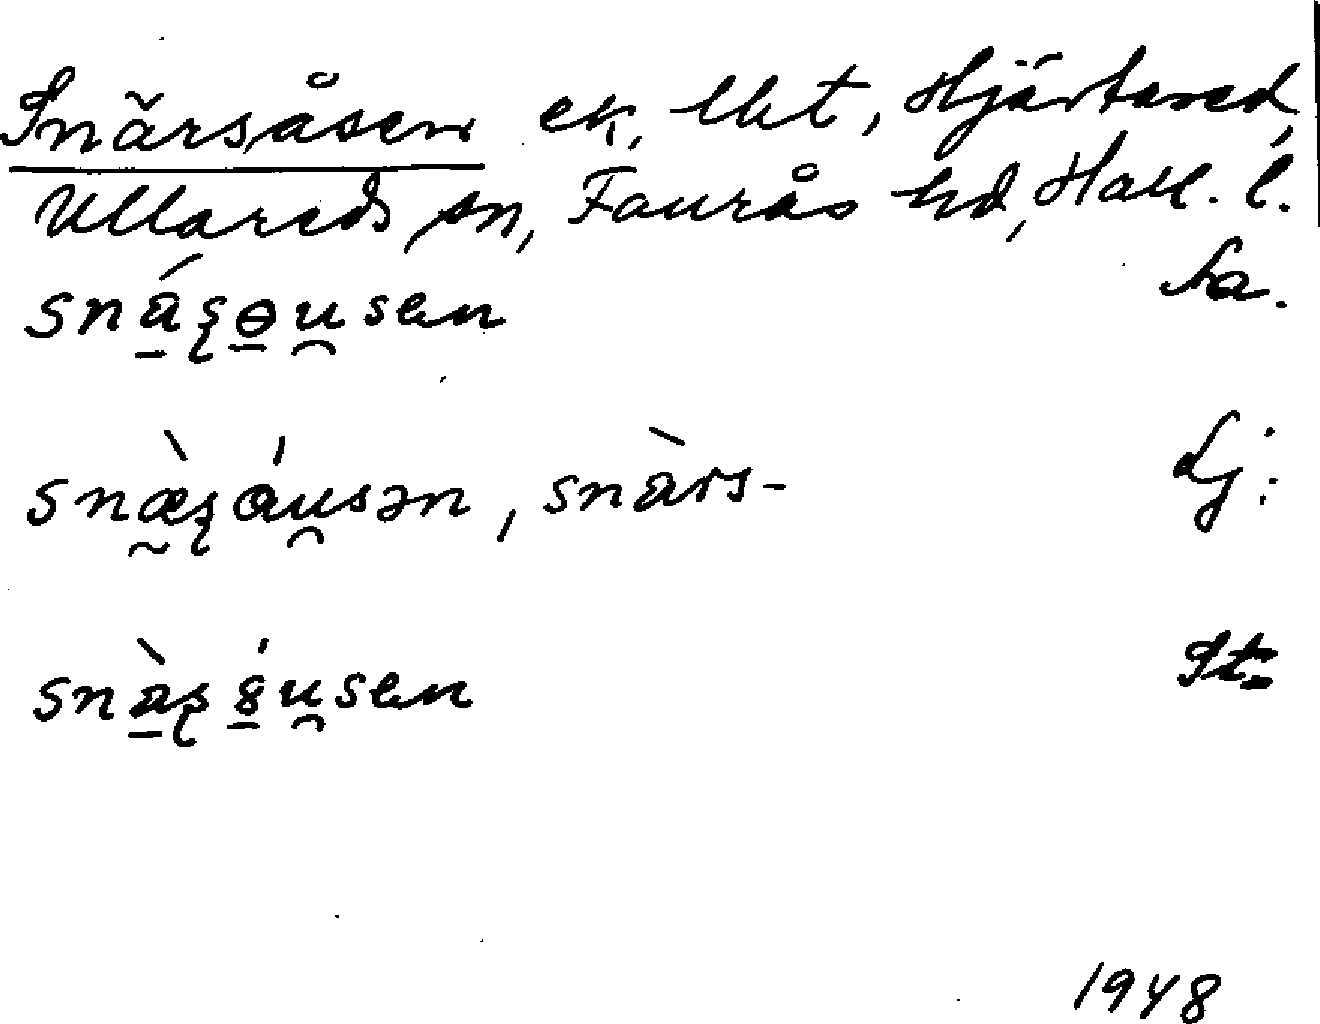 Snärsåsen ek, lht, Hjärtared,
Ullareds sn, Faurås hd, Hall. l.
snásɵusen Sa.
snæ̀sɑ́usən, snàrs- Lj:
snàs8́usen St:
1948